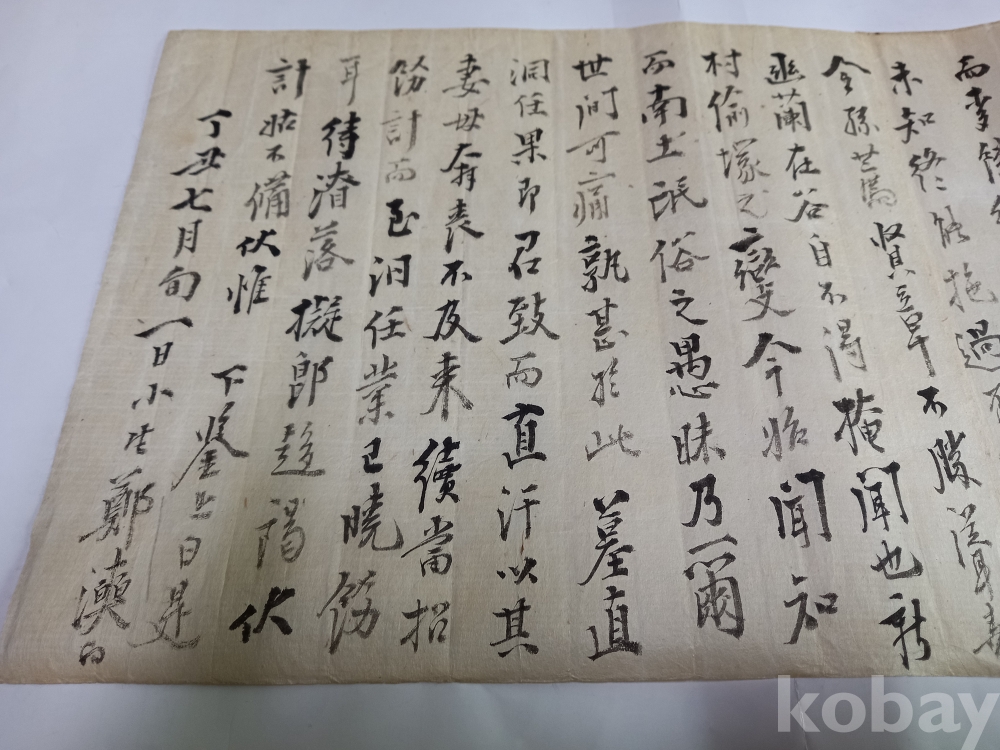 而李
未知終能拖過
令孫 賢 早不勝
幽蘭在谷自不得掩聞也新
村偷塚之變今始聞知
而南土氓俗之愚昧乃爾
世間可痛孰甚於此墓直
洞任果即召致而直汗以其
妻母奔喪不及来續當招
飭計而至洞任業已曉飭
耳待潦落擬即趍陽伏
計姑不備伏惟
下鑒上白是
丁丑七月旬一日小生鄭 白
kobay